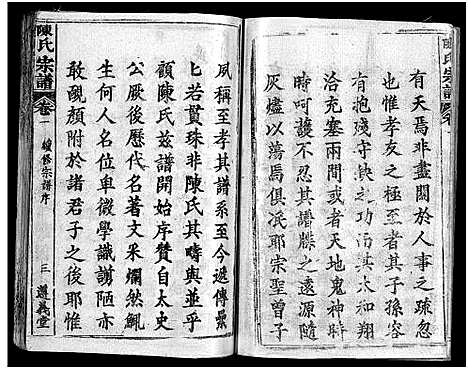 有天焉非盡關於人事之疏忽
也惟孝友之極至者其子孫容
有抱殘守缺之功而其太和翔
洽充塞兩間或者天地鬼神時
時呵護不忍其譜牒之遠源隨
灰燼以蕩焉俱泯耶宗聖曾子
夙稱至孝其譜系至今遞傳纍
匕若貫珠非陳氏其疇與並乎
顧陳氏兹譜開始序贊自太史
公厥後歷代名著文采爛然鯫
生何人名位卑微學識謭陋亦
敢靦顏附於諸君子之後耶
陳氏宗譜
卷一
續修宗譜序
三
遵義堂
陳氏宗譜